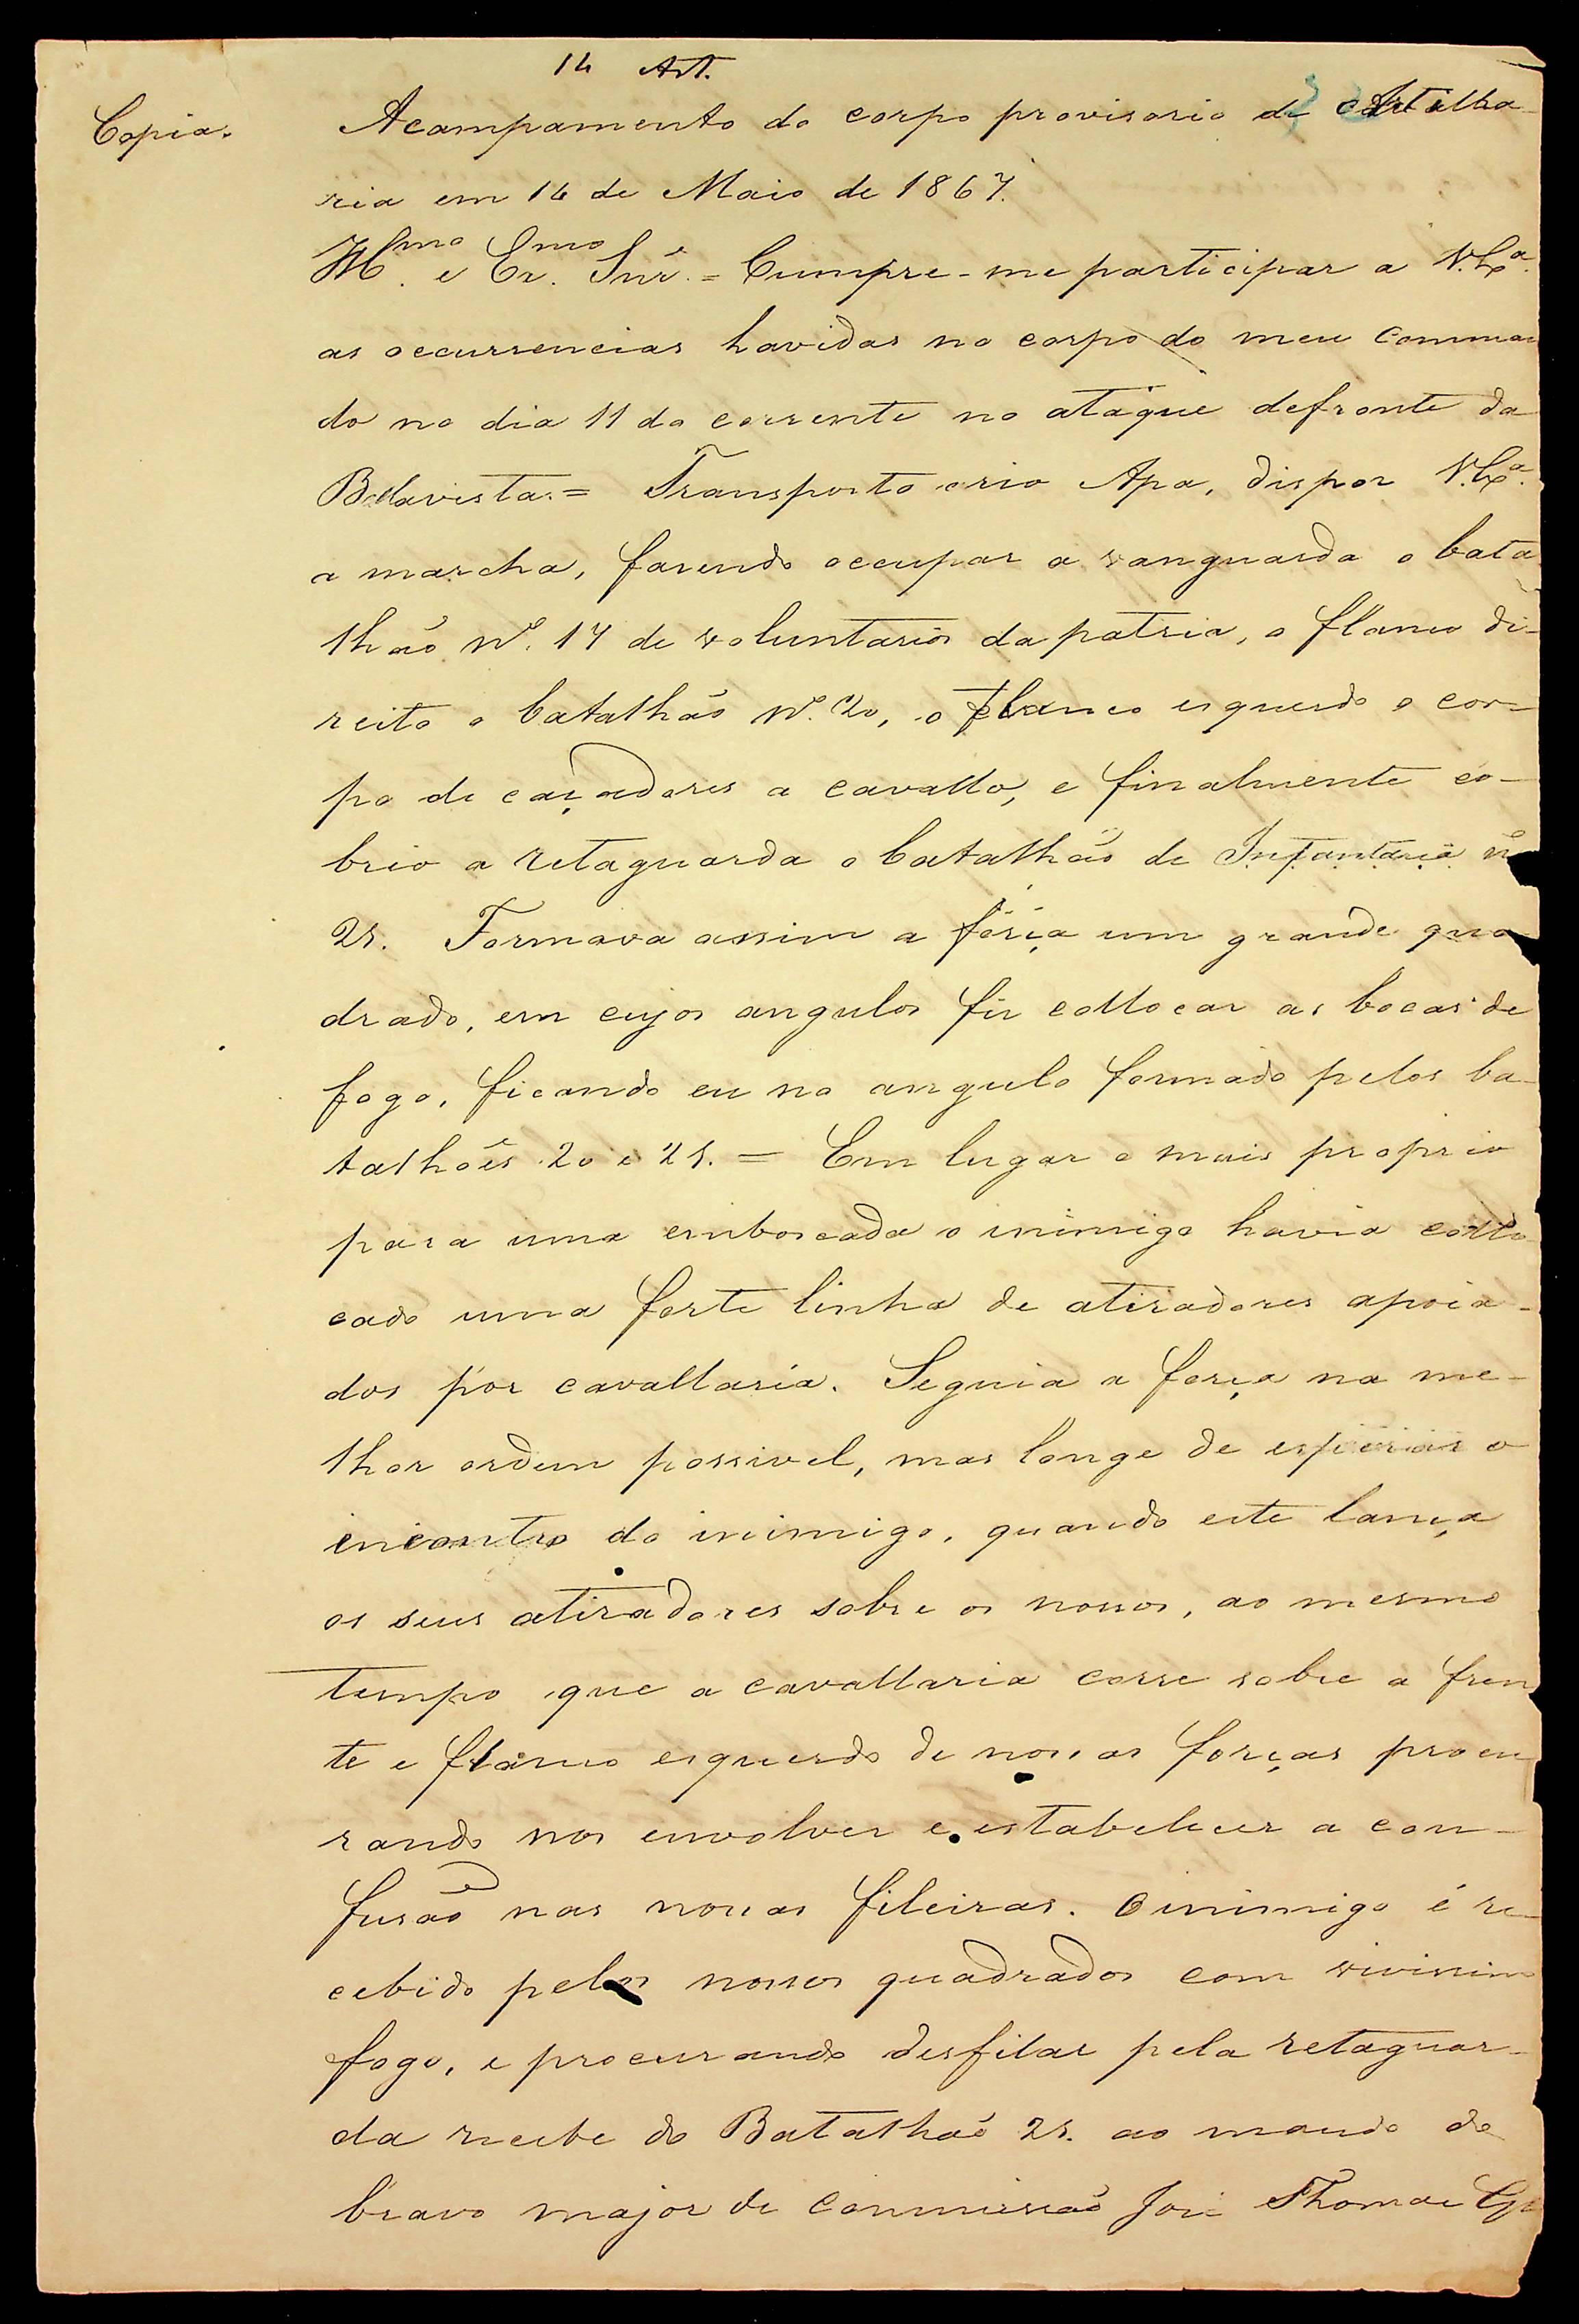 14 Art.
Copia. Acampamento do corpo provisorio de Artilha-
ria em 14 de Maio de 1867.
Illmo. e Exmo. Snr. = Cumpre-me participar a V.Exa.
as occurrencias havidas no corpo do meu comman
do no dia 11 do corrente no ataque defronte da
Bellavista. = Transposto o rio Apa, dispor V.Exa.
a marcha, fazendo occupar a vanguarda o bata
lhão Nº. 17 de voluntarios da patria, o flanco di-
reito o batalhão Nº. 20, o flanco esquerdo o cor-
po de caçadores a cavallo, e finalmente co-
brio a retaguarda o batalhão de Infantaria nº
21. Formava assim a força um grande qua
drado, em cujos angulos fiz collocar as bocas de
fogo, ficando eu no angulo formado pelos ba-
talhões 20 e 21. = Em lugar o mais proprio
para uma emboscada o inimigo havia collo
cado uma forte linha de atiradores apoia-
dos por cavallaria. Seguia a força na me-
lhor ordem possivel, mas longe de esperar o
encontro do inimigo, quando este lança
os seus atiradores sobre os nossos, ao mesmo
tempo que a cavallaria corre sobre a fren
te e flanco esquerdo de nossas forças procu
rando nos envolver e estabelecer a con-
fusão nas nossas fileiras. O inimigo é re-
cebido pelos nossos quadrados com vivissimo
fogo, e procurando desfilar pela retaguar-
da recebe do Batalhão 21. ao mando do
bravo major de commissão José Thomaz